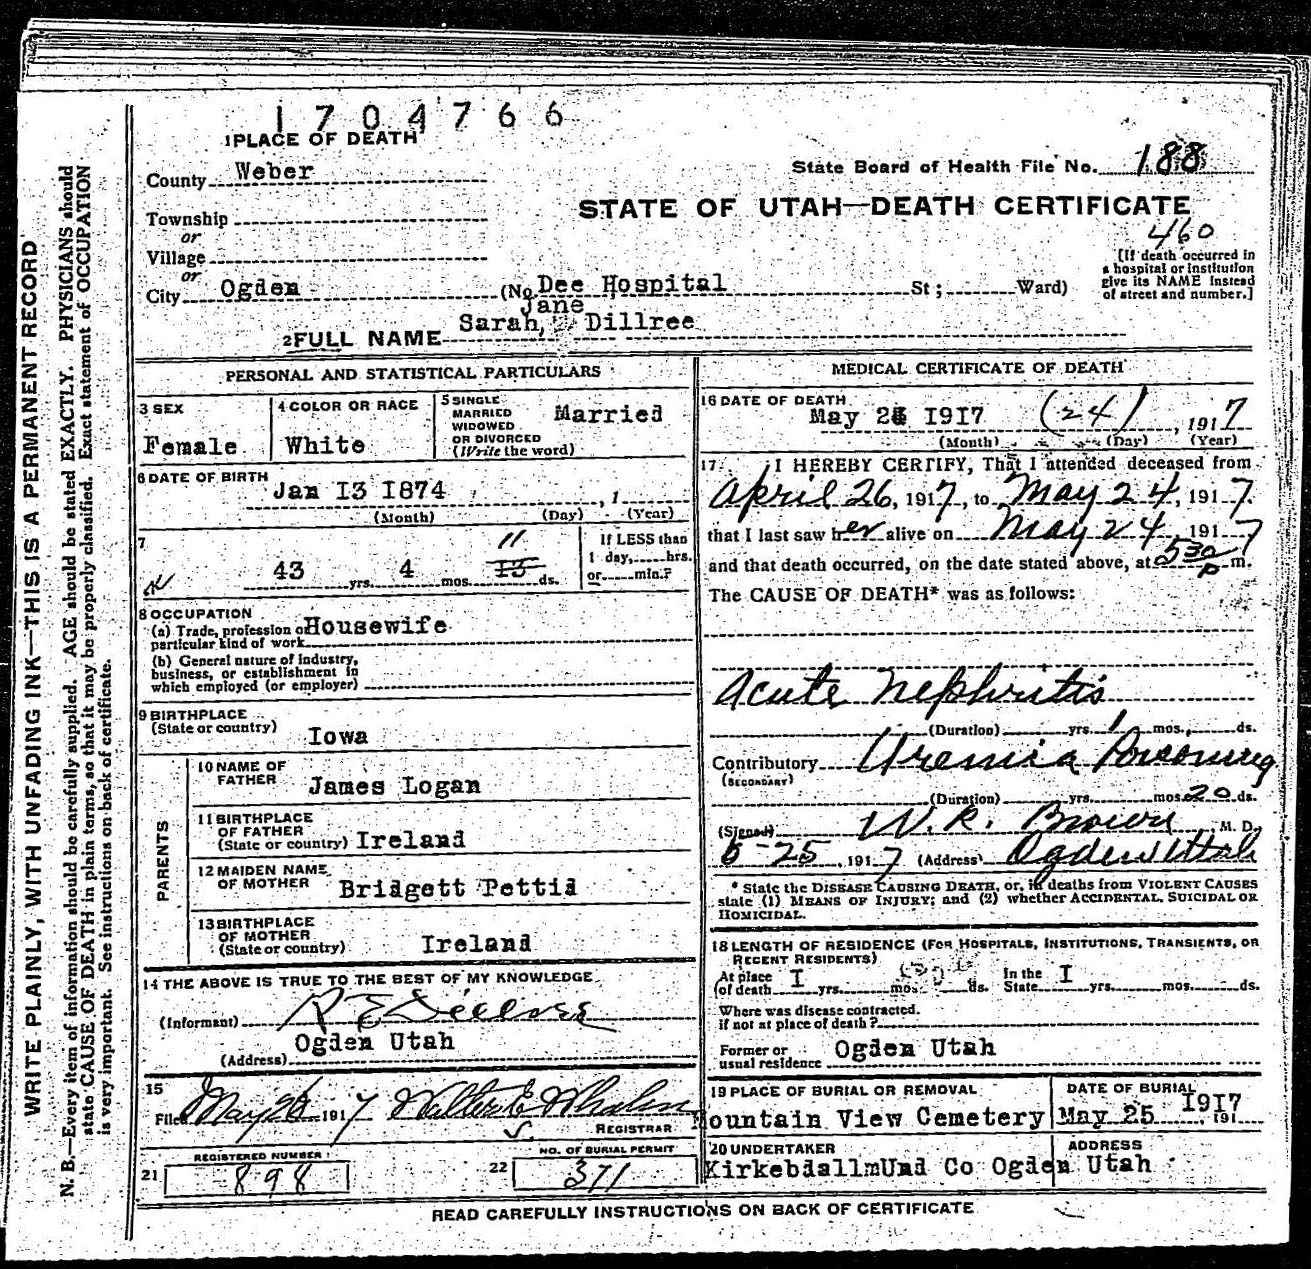 1704766
1 PLACE OF DEATH
County Weber
State Board of Health File No. 188
STATE OF UTAH—DEATH CERTIFICATE
460
Township
or
Village
or
City Ogden (No. Dee Hospital St; Ward)
[If death occurred in
a hospital or institution
give its NAME instead
of street and number.]
Jane
2 FULL NAME Sarah, Dillree
PERSONAL AND STATISTICAL PARTICULARS
3 SEX
Female
4 COLOR OR RACE
White
5 SINGLE
MARRIED
WIDOWED
OR DIVORCED
(Write the word)
Married
6 DATE OF BIRTH
Jan I3 I874 , 1
(Month) (Day) (Year)
7
11
43 yrs. 4 mos. I3 ds.
If LESS than
1 day, hrs.
or min.?
8 OCCUPATION
(a) Trade, profession or Housewife
particular kind of work
(b) General nature of industry,
business, or establishment in
which employed (or employer)
9 BIRTHPLACE
(State or country)
Iowa
PARENTS
10 NAME OF
FATHER
James Logan
11 BIRTHPLACE
OF FATHER
(State or country) Ireland
12 MAIDEN NAME
OF MOTHER Bridgett Pettid
13 BIRTHPLACE
OF MOTHER
(State or country) Ireland
14 THE ABOVE IS TRUE TO THE BEST OF MY KNOWLEDGE
(Informant) R E Dillree
Ogden Utah
(Address)
15
Filed May 26 1917 Walter E Whalen
REGISTRAR
REGISTERED NUMBER
21 898
NO. OF BURIAL PERMIT
22 371
MEDICAL CERTIFICATE OF DEATH
16 DATE OF DEATH
May 24 I9I7 (24) , 1917
(Month) (Day) (Year)
17. I HEREBY CERTIFY, That I attended deceased from
April 26, 1917, to May 24, 1917.
that I last saw her alive on May 24 1917
and that death occurred, on the date stated above, at 530 p m.
The CAUSE OF DEATH* was as follows:
Acute Nephritis
(Duration) yrs. 1 mos. ds.
Contributory Uremia Poisoning
(SECONDARY)
(Duration) yrs. mos. 20 ds.
(Signed) W. R. Brown M. D.
5-25, 1917 (Address) Ogden Utah
* State the DISEASE CAUSING DEATH, or, in deaths from VIOLENT CAUSES
state (1) MEANS OF INJURY; and (2) whether ACCIDENTAL, SUICIDAL OR
HOMICIDAL.
18 LENGTH OF RESIDENCE (FOR HOSPITALS, INSTITUTIONS, TRANSIENTS, OR
RECENT RESIDENTS)
At place
of death I yrs. mos. ds.
In the
State I yrs. mos. ds.
Where was disease contracted.
if not at place of death?
Former or
usual residence Ogden Utah
19 PLACE OF BURIAL OR REMOVAL
Mountain View Cemetery
DATE OF BURIAL
May 25 I9I7 191
20 UNDERTAKER
KirkebdallmUnd Co Ogden Utah
ADDRESS
READ CAREFULLY INSTRUCTIONS ON BACK OF CERTIFICATE
WRITE PLAINLY, WITH UNFADING INK—THIS IS A PERMANENT RECORD
N. B.—Every item of information should be carefully supplied. AGE should be stated EXACTLY. PHYSICIANS should
state CAUSE OF DEATH in plain terms, so that it may be properly classified. Exact statement of OCCUPATION
is very important. See instructions on back of certificate.